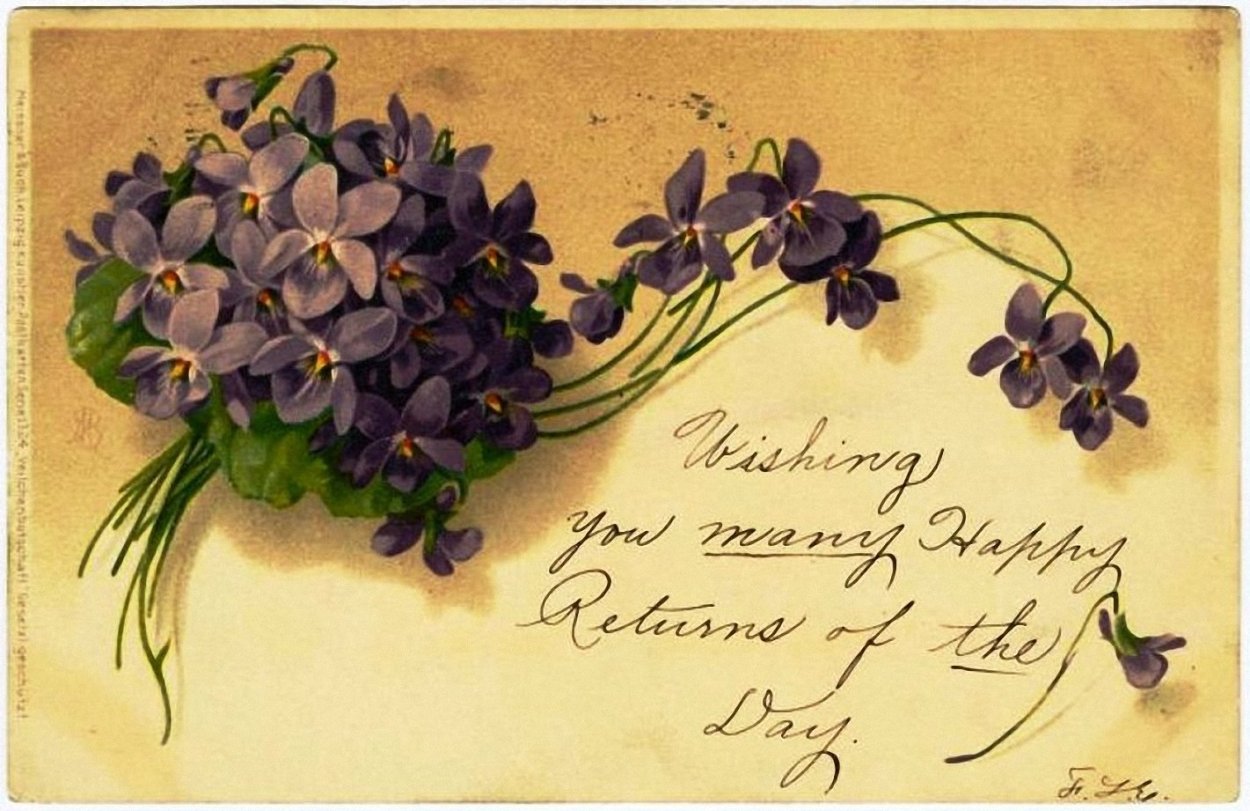 Wishing
you many Happy
Returns of the
Day.
F. L. E.
Meissner & Buch, Leipzig Künstler-Postkarten Serie 1124 "Veilchenbotschaft" Gesetzl. geschützt